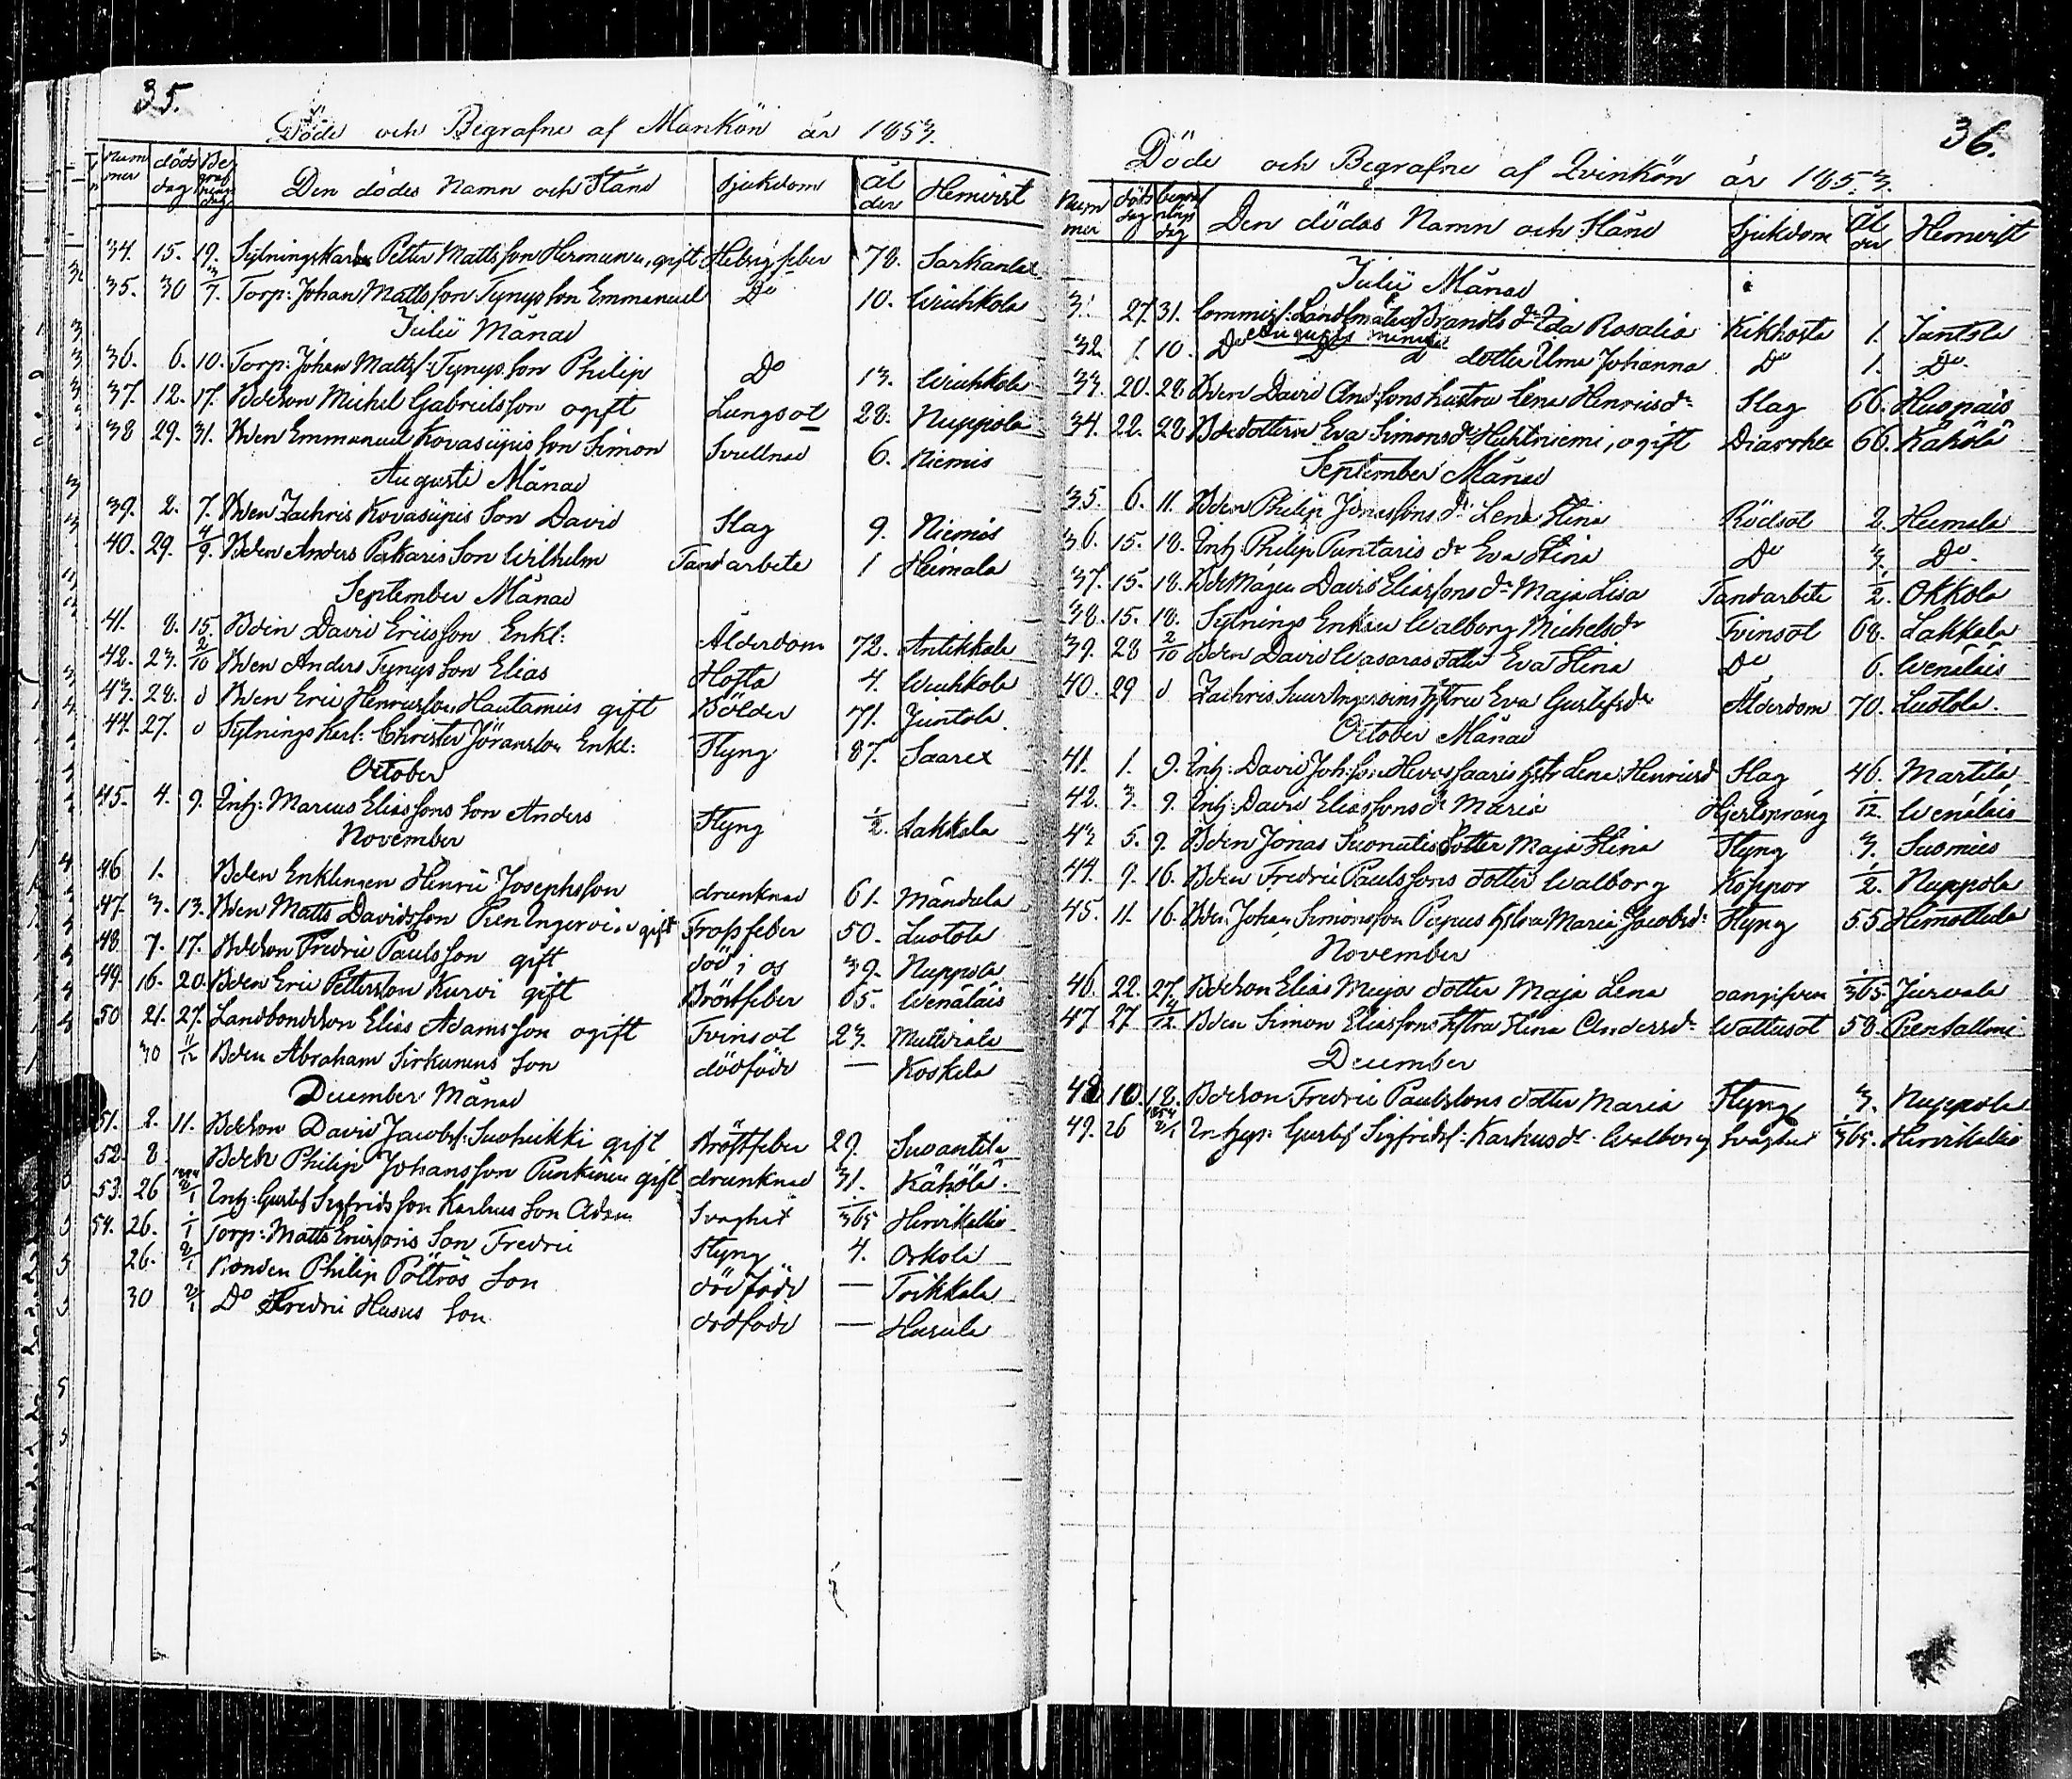 35.
Döde och Begrafne af Mankön år 1853.
Nummer döds dag Begrafnings dag Den dödes Namn och Stånd Sjukdom Ålder Hemvist
34. 15. 19. Sytningskarln Petter Mattsson Hermunen, gift Hetsig feber 78. Sarkanlax
35. 30 3/7. Torp: Johan Mattsson Tynys son Emmanuel Do 10. Wiuhkola
Julii Månad
36. 6. 10. Torp: Johan Mattss: Tynys son Philip Do 13. Wiuhkola
37. 12. 17. Bdeson Michel Gabrielsson ogift Lungsot 28. Nuppola
38 29. 31. Bden Emmanuel Kovasiipis son Simon Svullnad 6. Niemis
Augusti Månad
39. 2. 7. Bden Zachris Kovasiipis Son David Slag 9. Niemis
40. 29. 4/9. Bden Anders Pakaris Son Wilhelm Tandarbete 1 Heimala
September Månad
41. 8. 15. Bden David Ericsson Enkl: Ålderdom 72. Antikkala
42. 23. 2/10 Bden Anders Tynys son Elias Hosta 4. Wiuhkola
43. 28. d Bden Eric Henricsson Hautamies gift Bölder 71. Juntola
44. 27. d Sytnings Karl: Christer Jöransson Enkl: Styng 87. Saarex
October
45. 4. 9. Inh: Marcus Eliassons son Anders Styng 1/2. Lakkala
November
46 1. Bden Enklingen Henric Josephsson drunknad 61. Mändula
47. 3. 13. Bden Matts Davidsson Pien Ingervin gift Frossfeber 50. Luotola
48 7. 17. Bdeson Fredric Paulsson gift död i os 39. Nuppola
49. 16. 20. Bden Eric Pettersson Kurvi gift Bröstfeber 65. Wenäläis
50 21. 27. Landbondeson Elias Adamsson ogift Tvinsot 23. Muttiala
30 4/12 Bden Abraham Sirkunens Son dödföde — Koskela
December Månad
51. 2. 11. Bdeson David Jacobss: Suoheikki gift Bröstfeber 29. Suoanttila
52. 8 Bden Philip Johansson Punkinen gift drunknad 31. Kähölä.
53. 26 1854 2/1 Inh: Gustaf Sigfridsson Karhus Son Adam Svaghet 1/365 Hirvikallio
54. 26. 1/1 Torp: Matts Son Fredric Styng 4. Orkola
26. 2/1 Bonden Philip Pöltrös Son dödföde — Toikkala
30 2/1 Do Fredric Husus Son dödföde — Husula
36.
Döde och Begrafne af Qvinkön år 1853.
Nummer döds dag begrafnings dag Den dödas Namn och Stånd Sjukdom Ålder Hemvist
Julii Månad
31 27. 31. Commiss: Landtmätar Brandts dr Ida Rosalia Kikhosta 1. Jäntola
Augusti månad
32. 1. 10. Do Do d dotter Alma Johanna Do 1. Do.
33. 20. 28 Bden David Andssons hustru Lena Henricsdr Slag 66. Huopais
34. 22. 28 Bdedottern Eva Simonsdr Huhtniemi, ogift Diarrhea 66. Kähölä
September Månad
35. 6. 11. Bden Philip Jonassons dr Lena Stina Rödsot 2. Heimala
36. 15. 18. Inh: Philip Puntaris dr Eva Stina Do 3. Do.
37. 15. 18. Bde Mågen David Eliassons dr Maja Lisa Tandarbete 1/2. Okkola
38. 15. 18. Sytnings Enkan Walborg Michelsdr Tvinsot 68. Lakkala
39. 28 2/10 Bden David Wasaras dotter Eva Stina Do 6. Wenäläis
40. 29 d Zachris Suur Ingervins hstru Eva Gustafsdr Ålderdom 70. Luotola.
October Månad
41. 1. 9. Inh: David Joh:son Hervosaaris hstr Lena Henricsd Slag 46. Martila
42. 3. 9. Inh: David Eliassons dr Maria Hjertsprång 1/12. Wenäläis
43 5. 9. Bden Jonas Suonutis Dotter Maja Stina Styng 3. Suomies
44. 9. 16. Bden Fredric Paulssons dotter Walborg Koppor 1/2. Nuppola
45. 11. 16. Bden Johan Simonsson Pupus hstru Maria Jacobsd: Styng 55 Himottula
November
46. 22. 27. Bdeson Elias Muja dotter Maja Lena oangifven 1/365 Jurvala
47 27 4/12 Bden Simon Eliassons hstru Stina Andersdr Wattusot 58. Rentsalloni
December
48 10. 18. Bdeson Fredric Paulssons dotter Maria Styng 3. Nuppola
49. 26 1854 2/1 Inhys: Gustaf Sigfridss: Karhus dr Walborg Svaghet 1/365. Hirvikallio